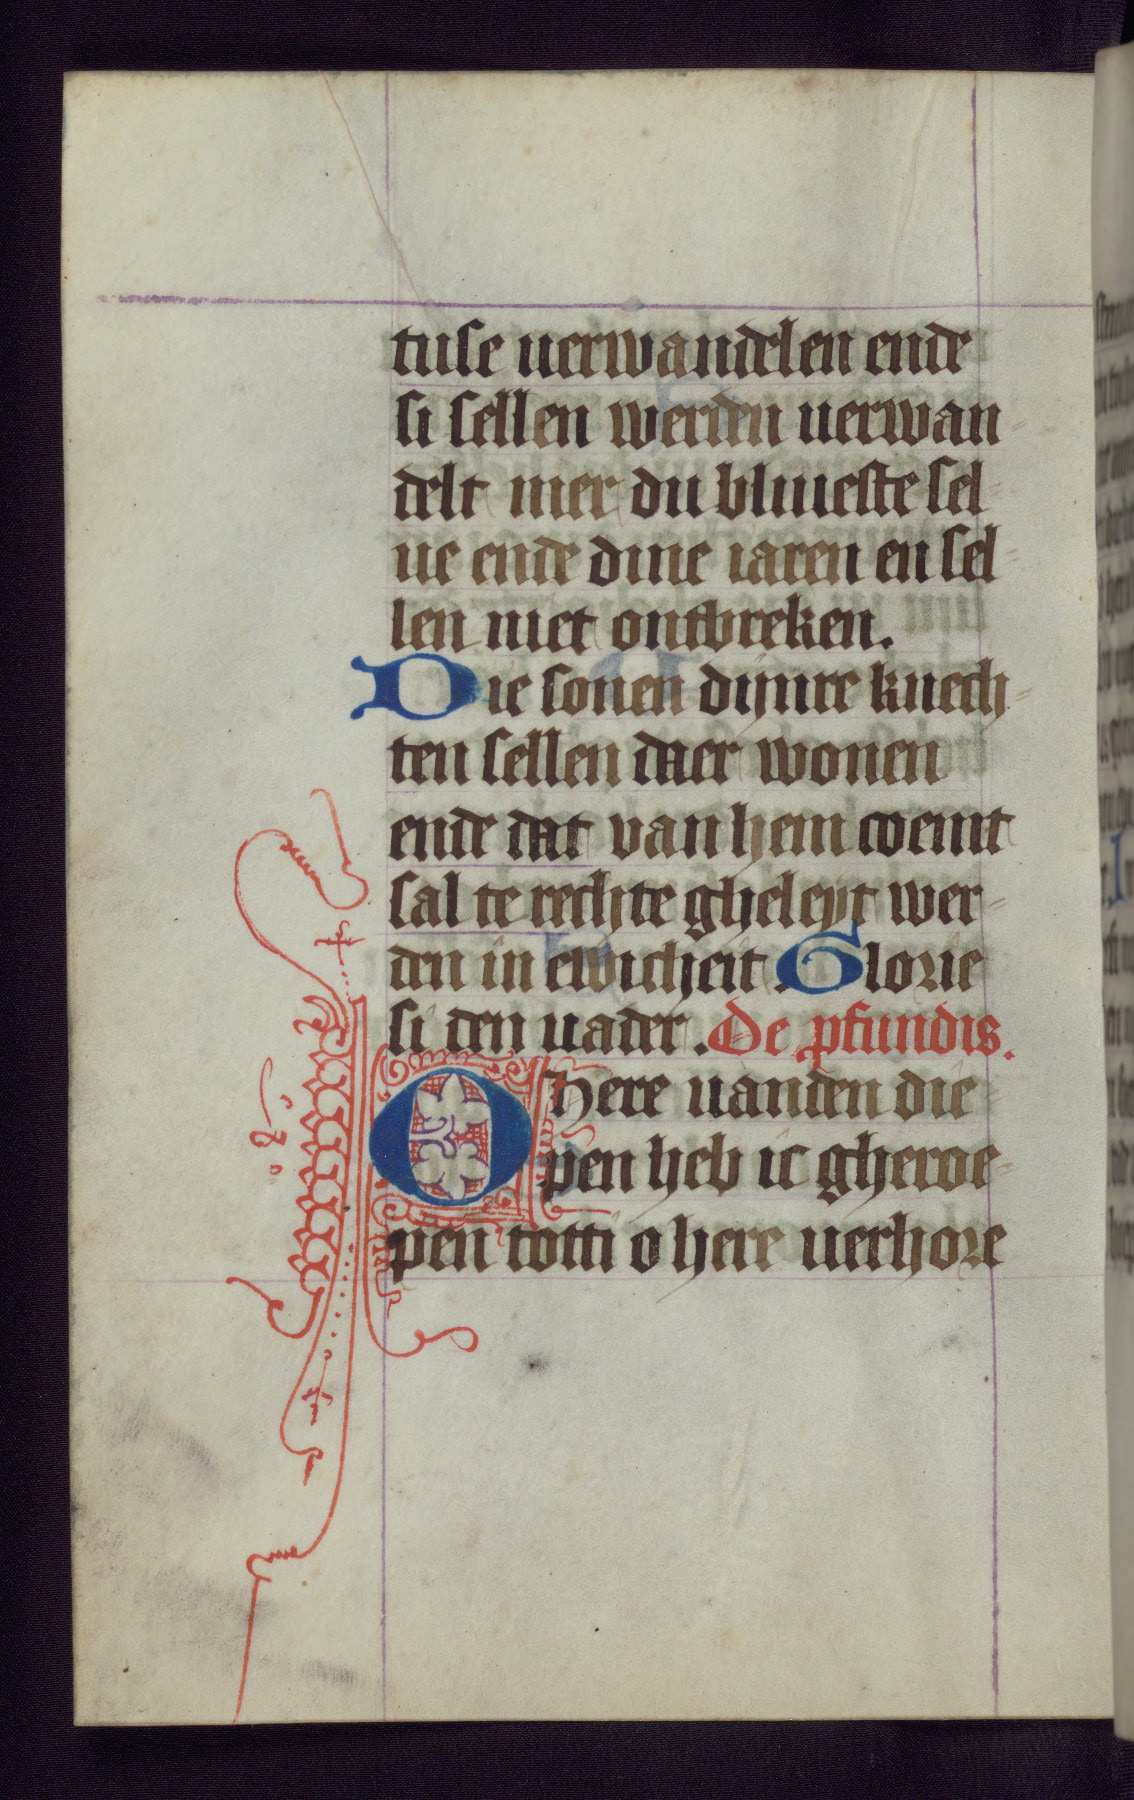 tuse uerwandelen ende
si sellen werden uerwan
delt mer du bliueste sel
ue ende dine iaren en sel
len niet ontbreken.
Die sonen dijnre knech
ten sellen daer wonen
ende dat van hem coemt
sal te rechte gheleyt wer
den in ewicheit. Glorie
si den uader. De pfundis.
O here uanden die
pen heb ic gheroe
pen totti o here uerhore